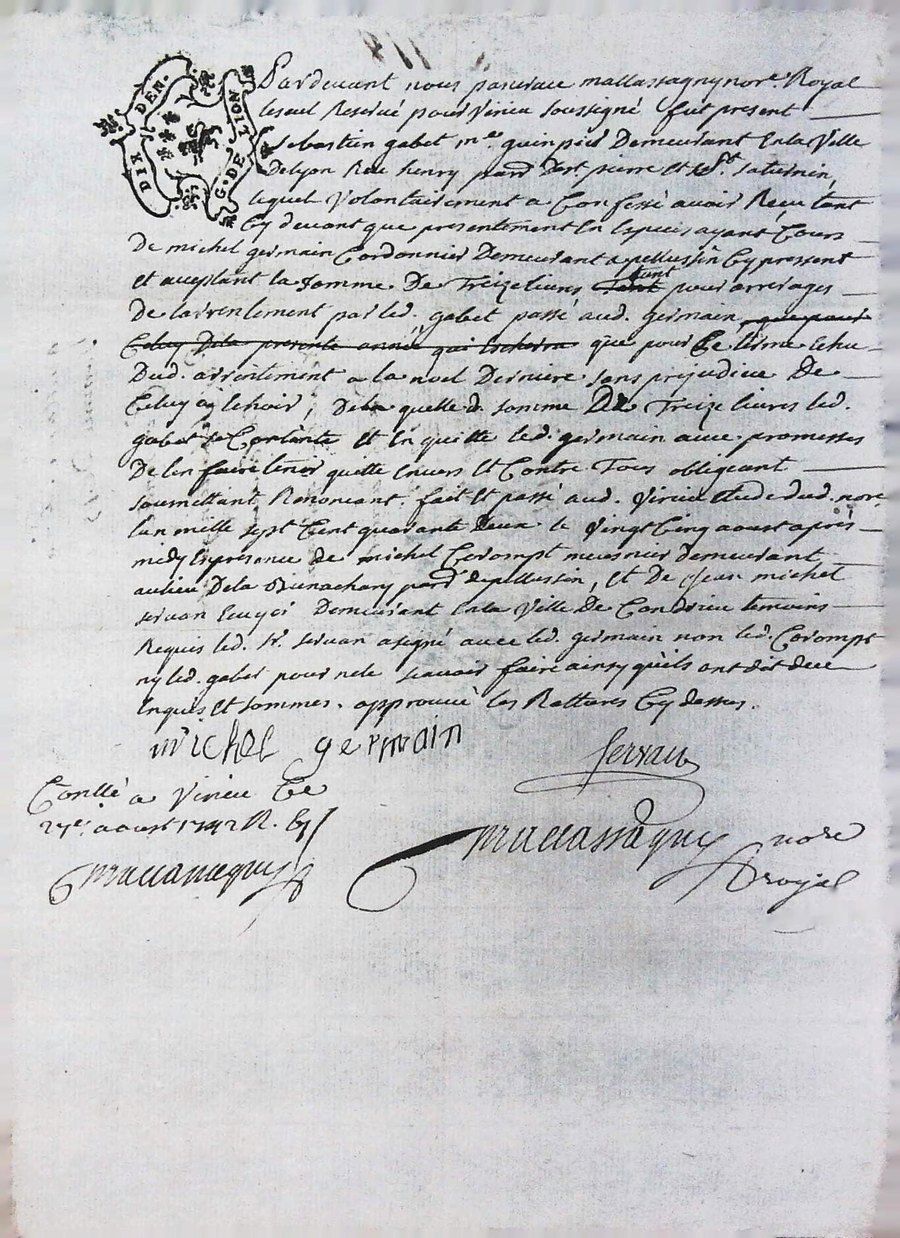 DIX DEN.
G. DE LION
Pardevant nous pancrace mallassagny nore. Royal
le seul Reservé pour Virieu soussigné fut present
Sebastien gabet me. guinpier Demeurant En la Ville
De lyon Rue henry parr. Dest pierre et St. saturnin,
lequel Volontairement a Confessé avoir Reçu tant
Cy devant que presentement En Especes ayant Cours
De michel germain Cordonnier Demeurant a pellussin Cy present
et aceptant la somme De Treize livres sont pour arrerages
De larrentement par led. gabet passé aud. germain, que pour
Celuy De la presente année qui Echerra que pour Le terme Echu
Dud. arrentement a la noel Derniere sans prejudice De
Celuy a Echoir, De la quelle d. somme De Treize livres led.
gabet se Contante et En quitte led. germain avec promesses
De len faire tenir quitte Envers et Contre Tous obligeant
soumettant Renoncant. fait et passé aud. Virieu Etude dud. nore
lan mille sept Cent quarante deux le Vingt Cinq aoust apres
midy En presence de michel Corompt meusnier demeurant
au lieu De la Bunachary parr. de pellussin, et De Jean michel
servan Ecuyer Demeurant En la Ville De Condrieu temoins
Requis led. sr. servan a signé avec led. germain non led. Corompt
ny led. gabet pour ne le scavoir faire ainsy quils ont dit de ce
Enquis et sommes. approuvé les Rattures Cy dessus.
michel germain
servan
Conllé a Virieu Ce
27e. aoust 1742 R.
Mallassagny
Mallassagny nore
royal